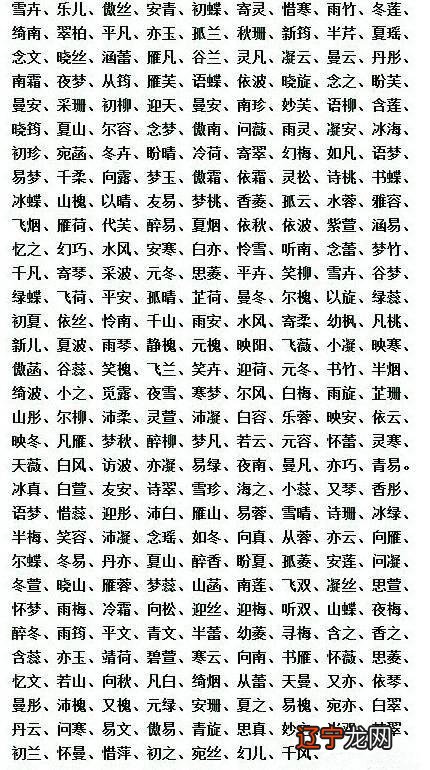 雪卉、乐儿、傲丝、安青、初蝶、寄灵、惜寒、雨竹、冬莲、
绮南、翠柏、平凡、亦玉、孤兰、秋珊、新筠、半芹、夏瑶、
念文、晓丝、涵蕾、雁凡、谷兰、灵凡、凝云、曼云、丹彤、
南霜、夜梦、从筠、雁芙、语蝶、依波、晓旋、念之、盼芙、
曼安、采珊、初柳、迎天、曼安、南珍、妙芙、语柳、含莲、
晓筠、夏山、尔容、念梦、傲南、问薇、雨灵、凝安、冰海、
初珍、宛菡、冬卉、盼晴、冷荷、寄翠、幻梅、如凡、语梦、
易梦、千柔、向露、梦玉、傲霜、依霜、灵松、诗桃、书蝶、
冰蝶、山槐、以晴、友易、梦桃、香菱、孤云、水蓉、雅容、
飞烟、雁荷、代芙、醉易、夏烟、依秋、依波、紫萱、涵易、
忆之、幻巧、水风、安寒、白亦、怜雪、听南、念蕾、梦竹、
千凡、寄琴、采波、元冬、思菱、平卉、笑柳、雪卉、谷梦、
绿蝶、飞荷、平安、孤晴、芷荷、曼冬、尔槐、以旋、绿蕊、
初夏、依丝、怜南、千山、雨安、水风、寄柔、幼枫、凡桃、
新儿、夏波、雨琴、静槐、元槐、映阳、飞薇、小凝、映寒、
傲菡、谷蕊、笑槐、飞兰、笑卉、迎荷、元冬、书竹、半烟、
绮波、小之、觅露、夜雪、寒梦、尔风、白梅、雨旋、芷珊、
山彤、尔柳、沛柔、灵萱、沛凝、白容、乐蓉、映安、依云、
映冬、凡雁、梦秋、醉柳、梦凡、若云、元容、怀蕾、灵寒、
天薇、白风、访波、亦凝、易绿、夜南、曼凡、亦巧、青易。
冰真、白萱、友安、诗翠、雪珍、海之、小蕊、又琴、香彤、
语梦、惜蕊、迎彤、沛白、雁山、易蓉、雪晴、诗珊、冰绿、
半梅、笑容、沛凝、念瑶、如冬、向真、从蓉、亦云、向雁、
尔蝶、冬易、丹亦、夏山、醉香、盼夏、孤菱、安莲、问凝、
冬萱、晓山、雁蓉、梦蕊、山菡、南莲、飞双、凝丝、思萱、
怀梦、雨梅、冷霜、向松、迎丝、迎梅、听双、山蝶、夜梅、
醉冬、雨筠、平文、青文、半蕾、幼菱、寻梅、含之、香之、
含蕊、亦玉、靖荷、碧萱、寒云、向南、书雁、怀薇、思菱、
忆文、若山、向秋、凡白、绮烟、从蕾、天曼、又亦、依琴、
曼彤、沛槐、又槐、元绿、安珊、夏之、易槐、宛亦、白翠、
丹云、问寒、易文、傲易、青旋、思真、
初兰、怀曼、惜萍、初之、宛丝、幻儿、千风、
辽宁龙网